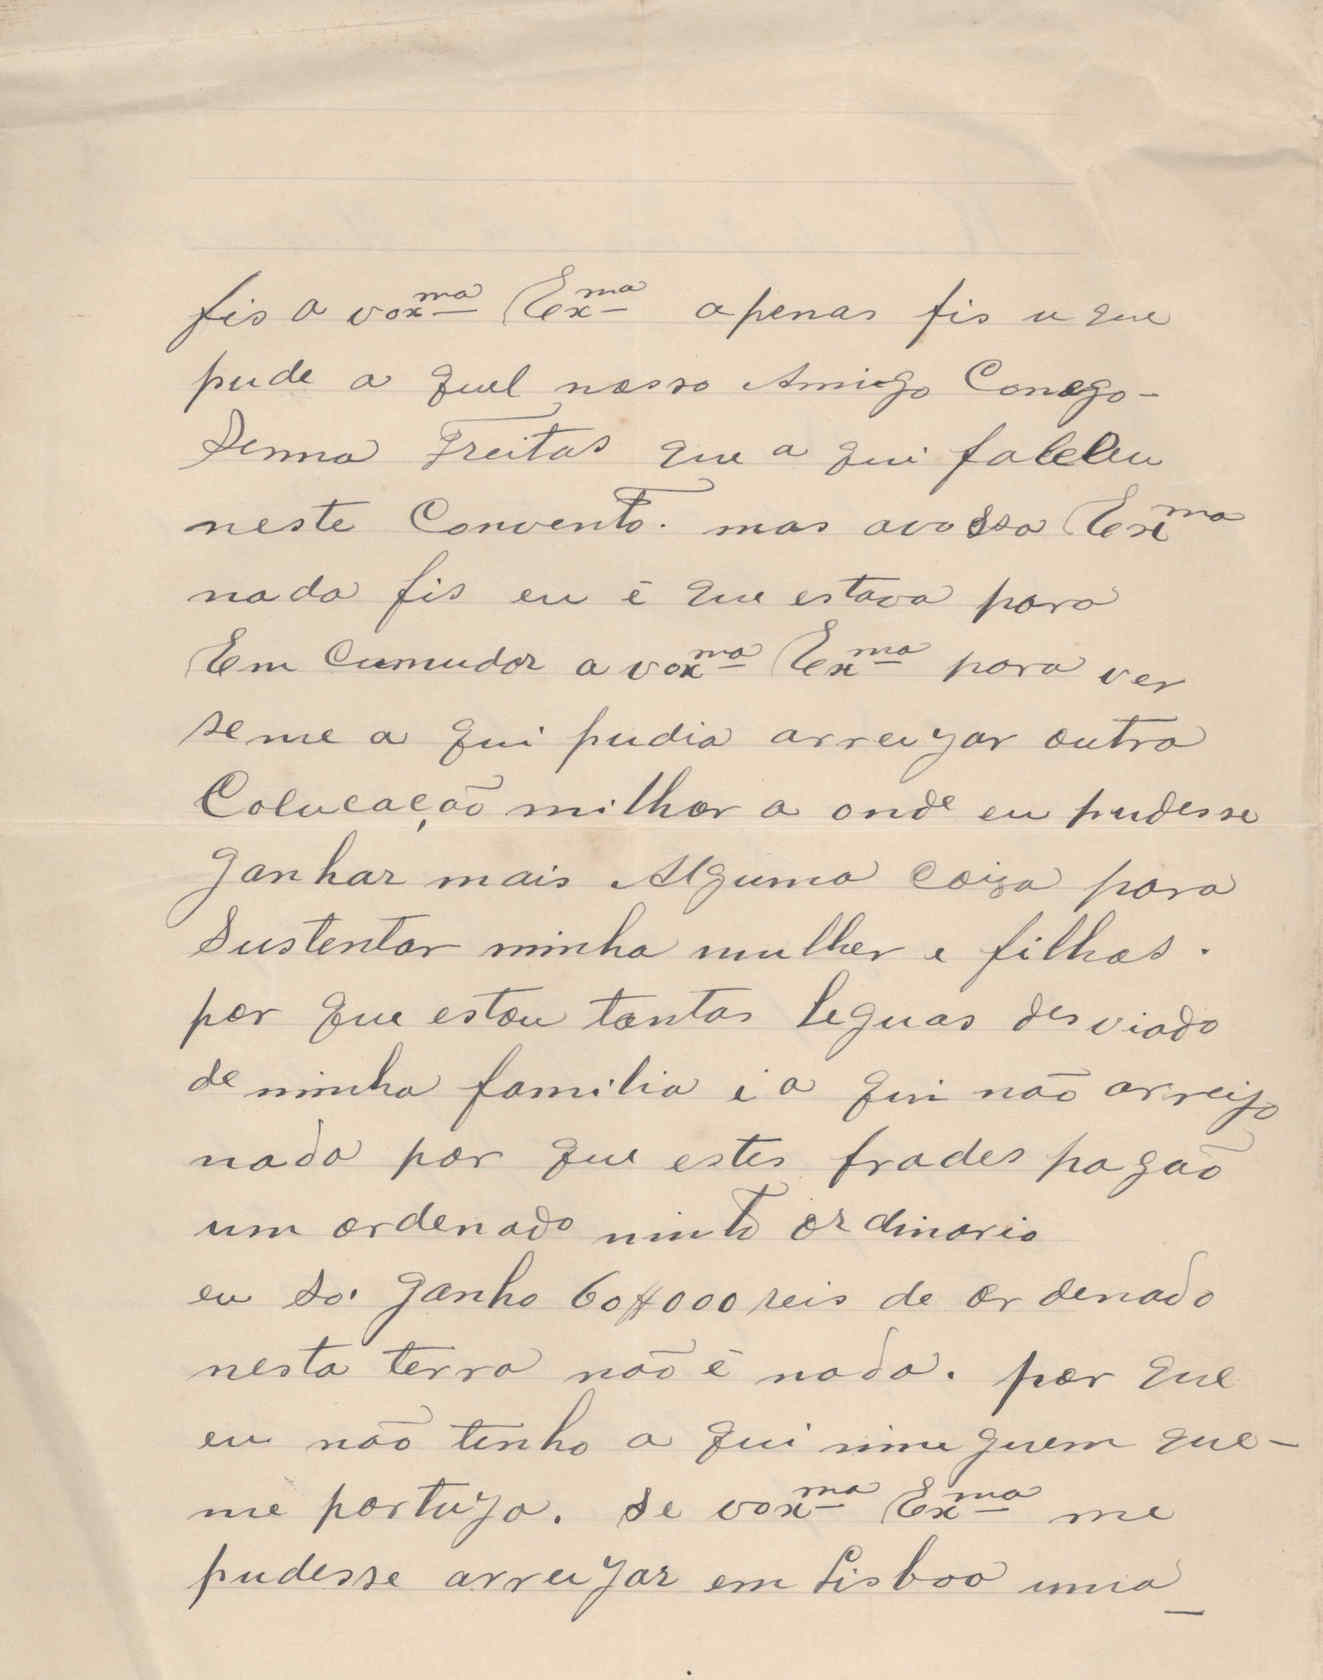 fis a voxma Exma apenas fis u que
pude a quel nosso Amigo Conego-
Senna Freitas que a qui faleceu
neste Convento. mas avossa Exma
nada fis eu é que estava para
Em Cumudar a voxma Exma para ver
seme a qui pudia arreyar outra
Colucação milhor a onde eu pudesse
ganhar mais Alguma Coiza para
Sustentar minha mulher e filhos.
por que estou tantas leguas desviado
de minha familia i a qui não arreijo
nada por que estes frades pagão
um ordenado muito ordinario
eu só ganho 60$000 reis de ordenado
nesta terra não é nada. por que
eu não tenho a qui nimguem que-
me portuja. se voxma Exma me
pudesse arreyar em Lisboa uma_